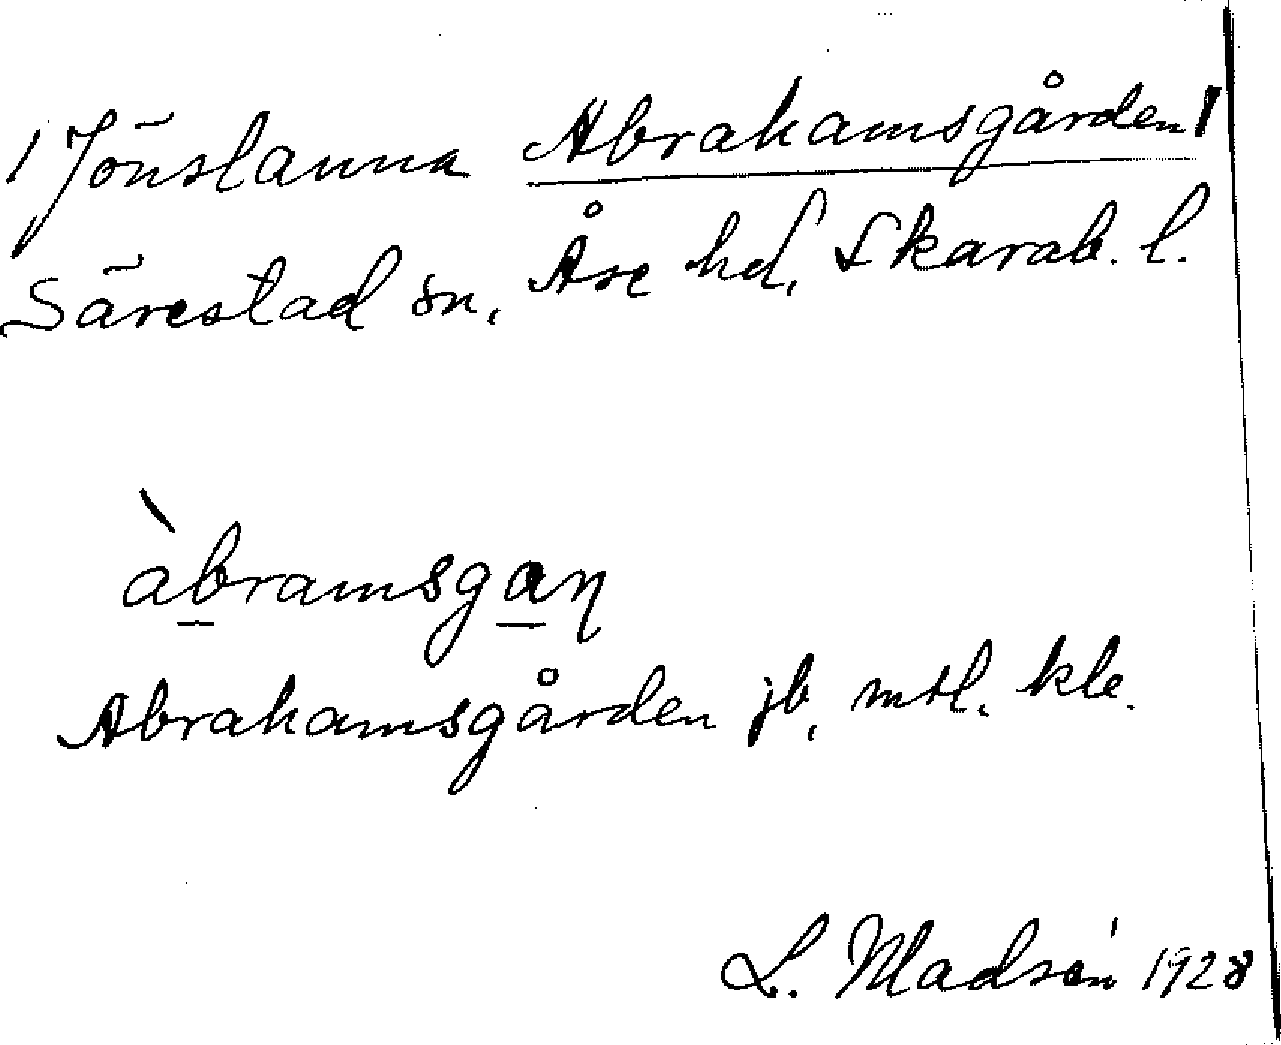 / Jönslanna Abrahamsgården /
Särestad sn, Åse hd, Skarab. l.
àbramsgaɳ
Abrahamsgården jb, mtl. kle.
L. Madsén 1928